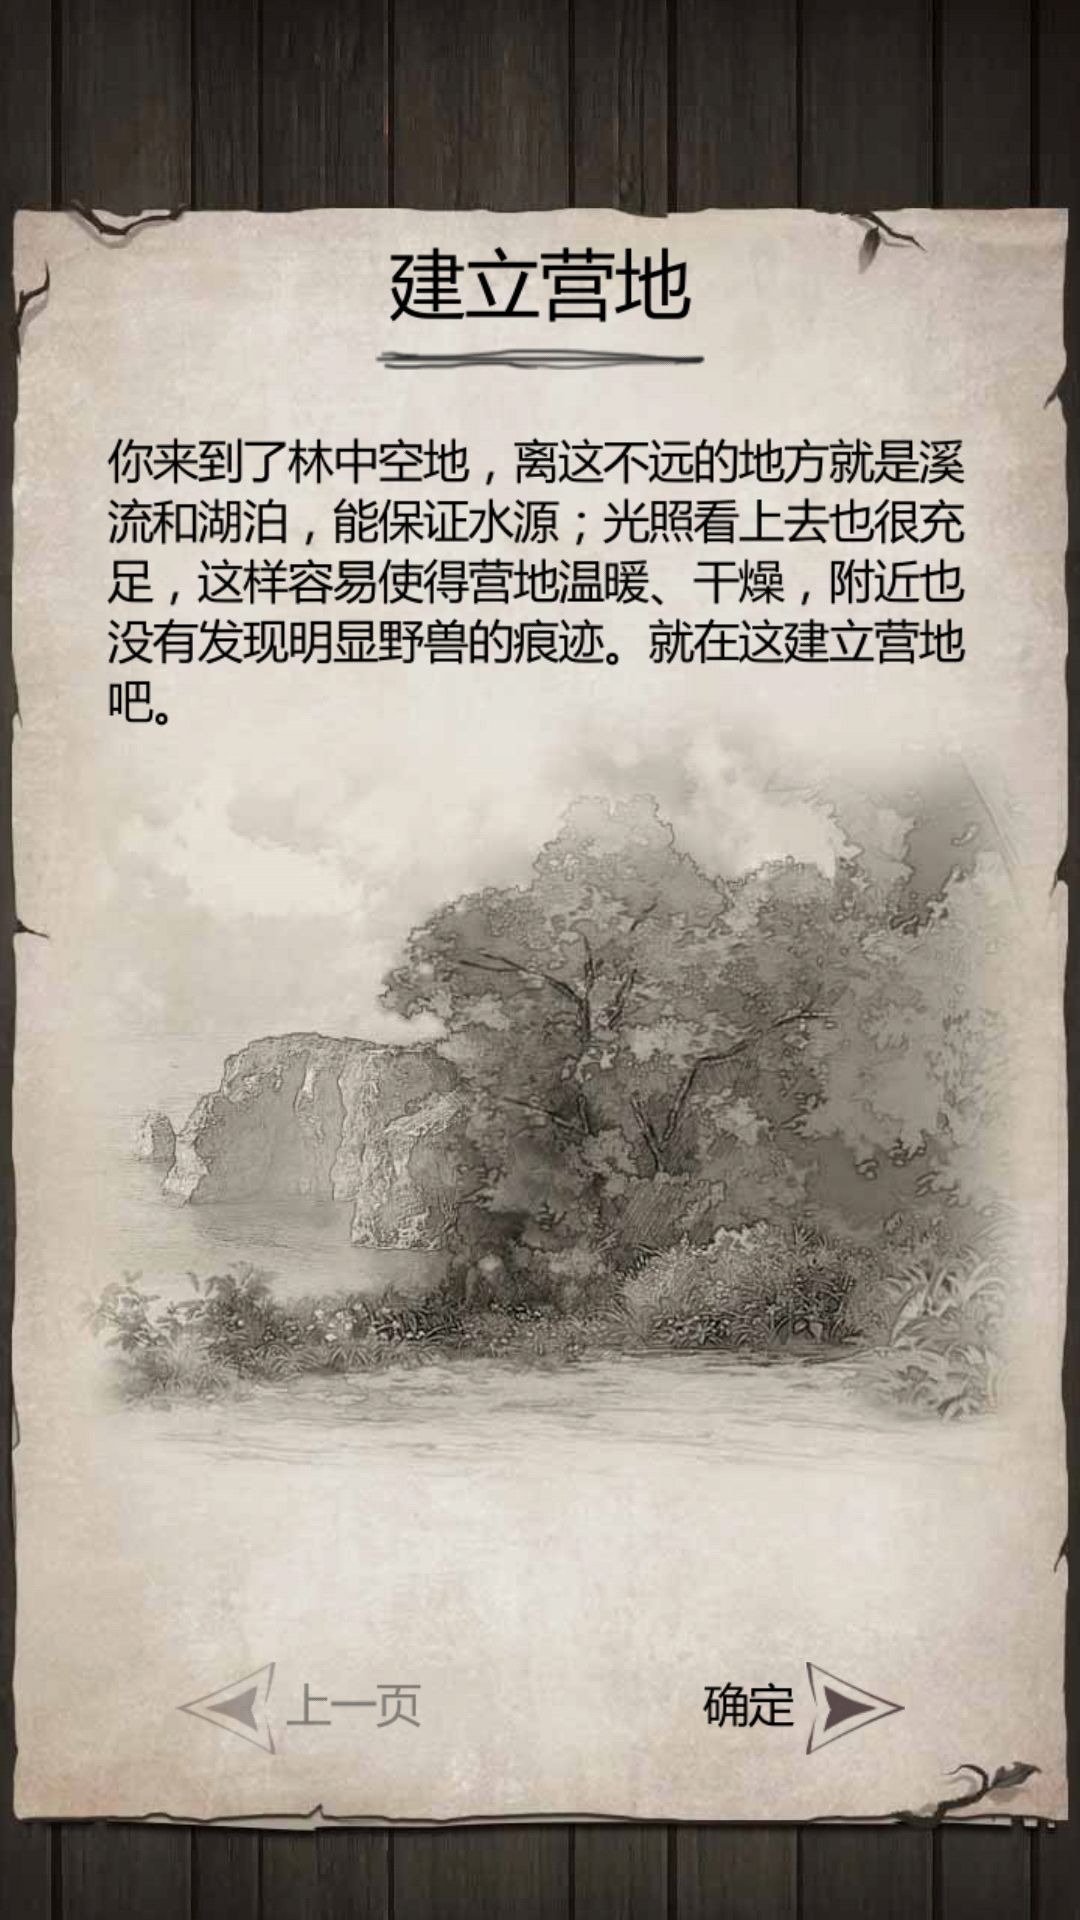 建立营地
你来到了林中空地，离这不远的地方就是溪
流和湖泊，能保证水源；光照看上去也很充
足，这样容易使得营地温暖、干燥，附近也
没有发现明显野兽的痕迹。就在这建立营地
吧。
上一页
确定